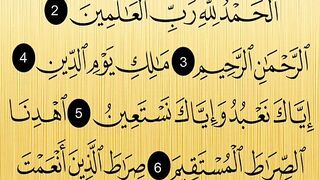 ٱلْحَمْدُ لِلَّهِ رَبِّ ٱلْعَالَمِينَ 2
ٱلرَّحْمَٰنِ ٱلرَّحِيمِ 3 مَالِكِ يَوْمِ ٱلدِّينِ 4
إِيَّاكَ نَعْبُدُ وَإِيَّاكَ نَسْتَعِينُ 5 ٱهْدِنَا
ٱلصِّرَاطَ ٱلْمُسْتَقِيمَ 6 صِرَاطَ ٱلَّذِينَ أَنْعَمْتَ